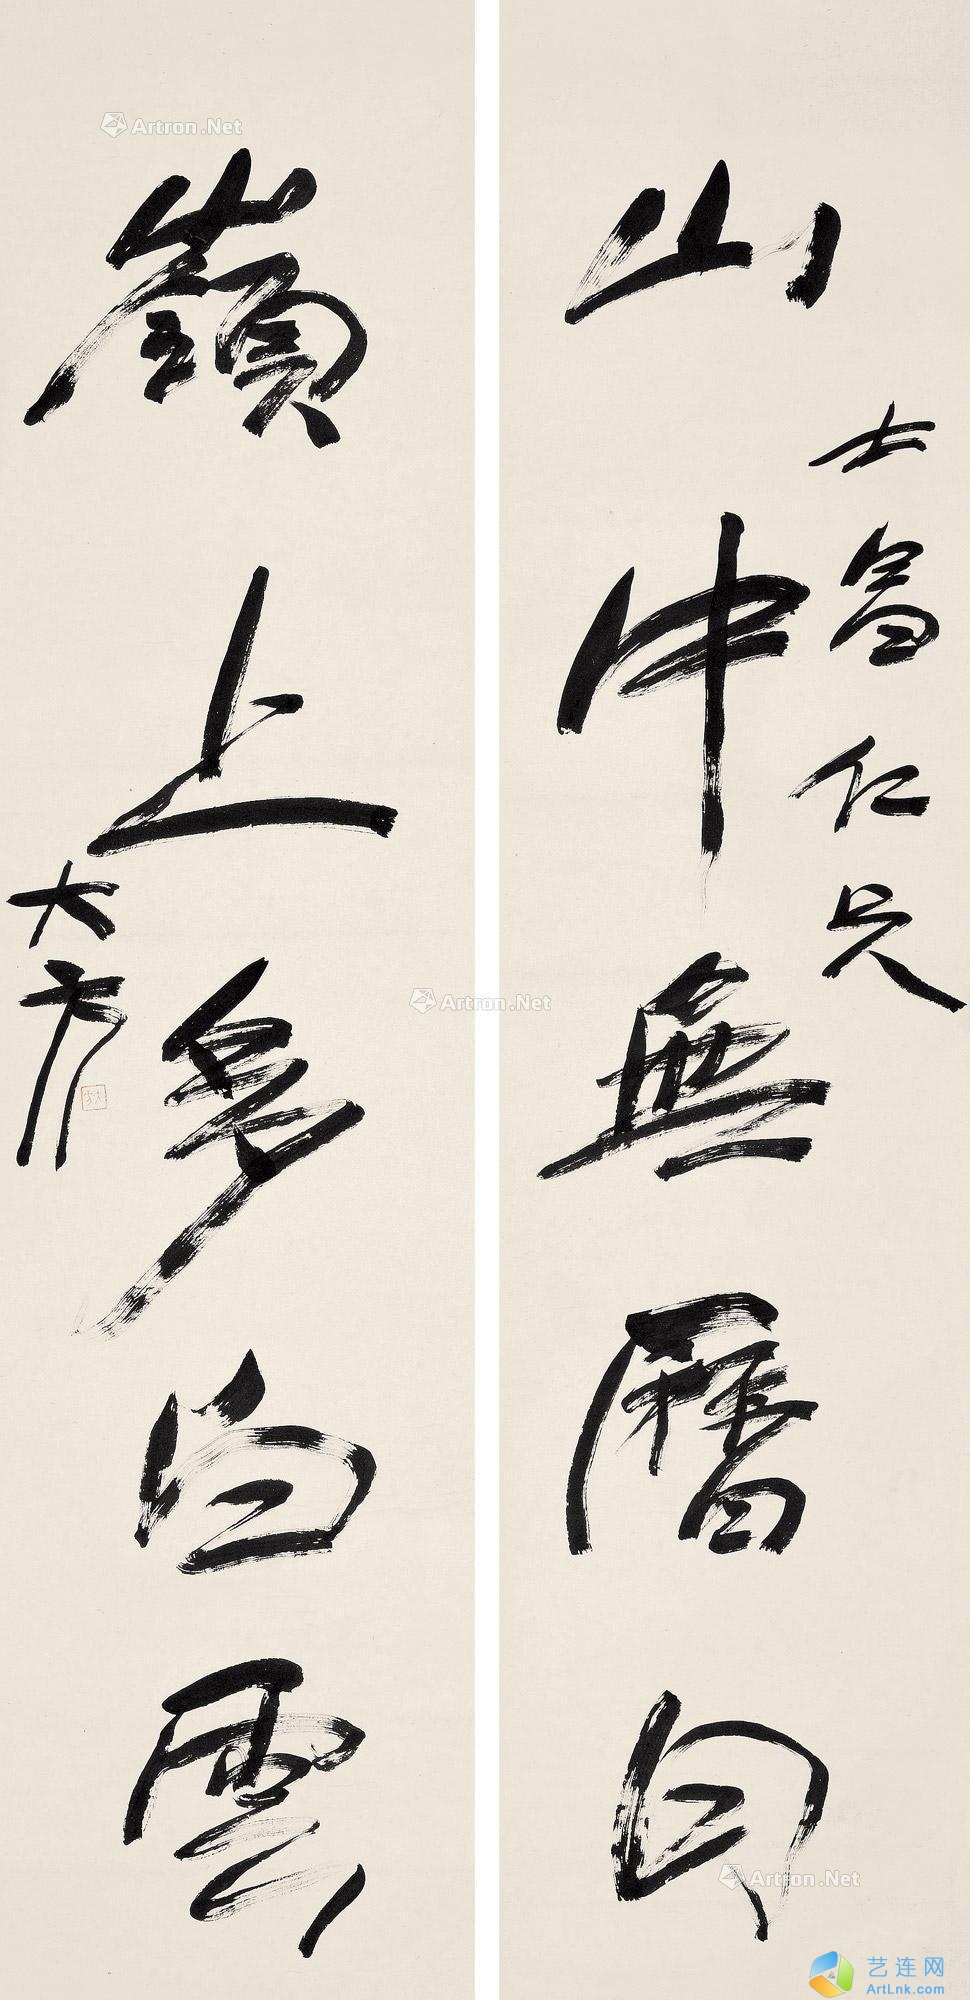 山中無曆日
士畲仁兄
嶺上多白雲
大方
Artron.Net
Artron.Net
Artron.Net
艺连网
ArtLnk.com